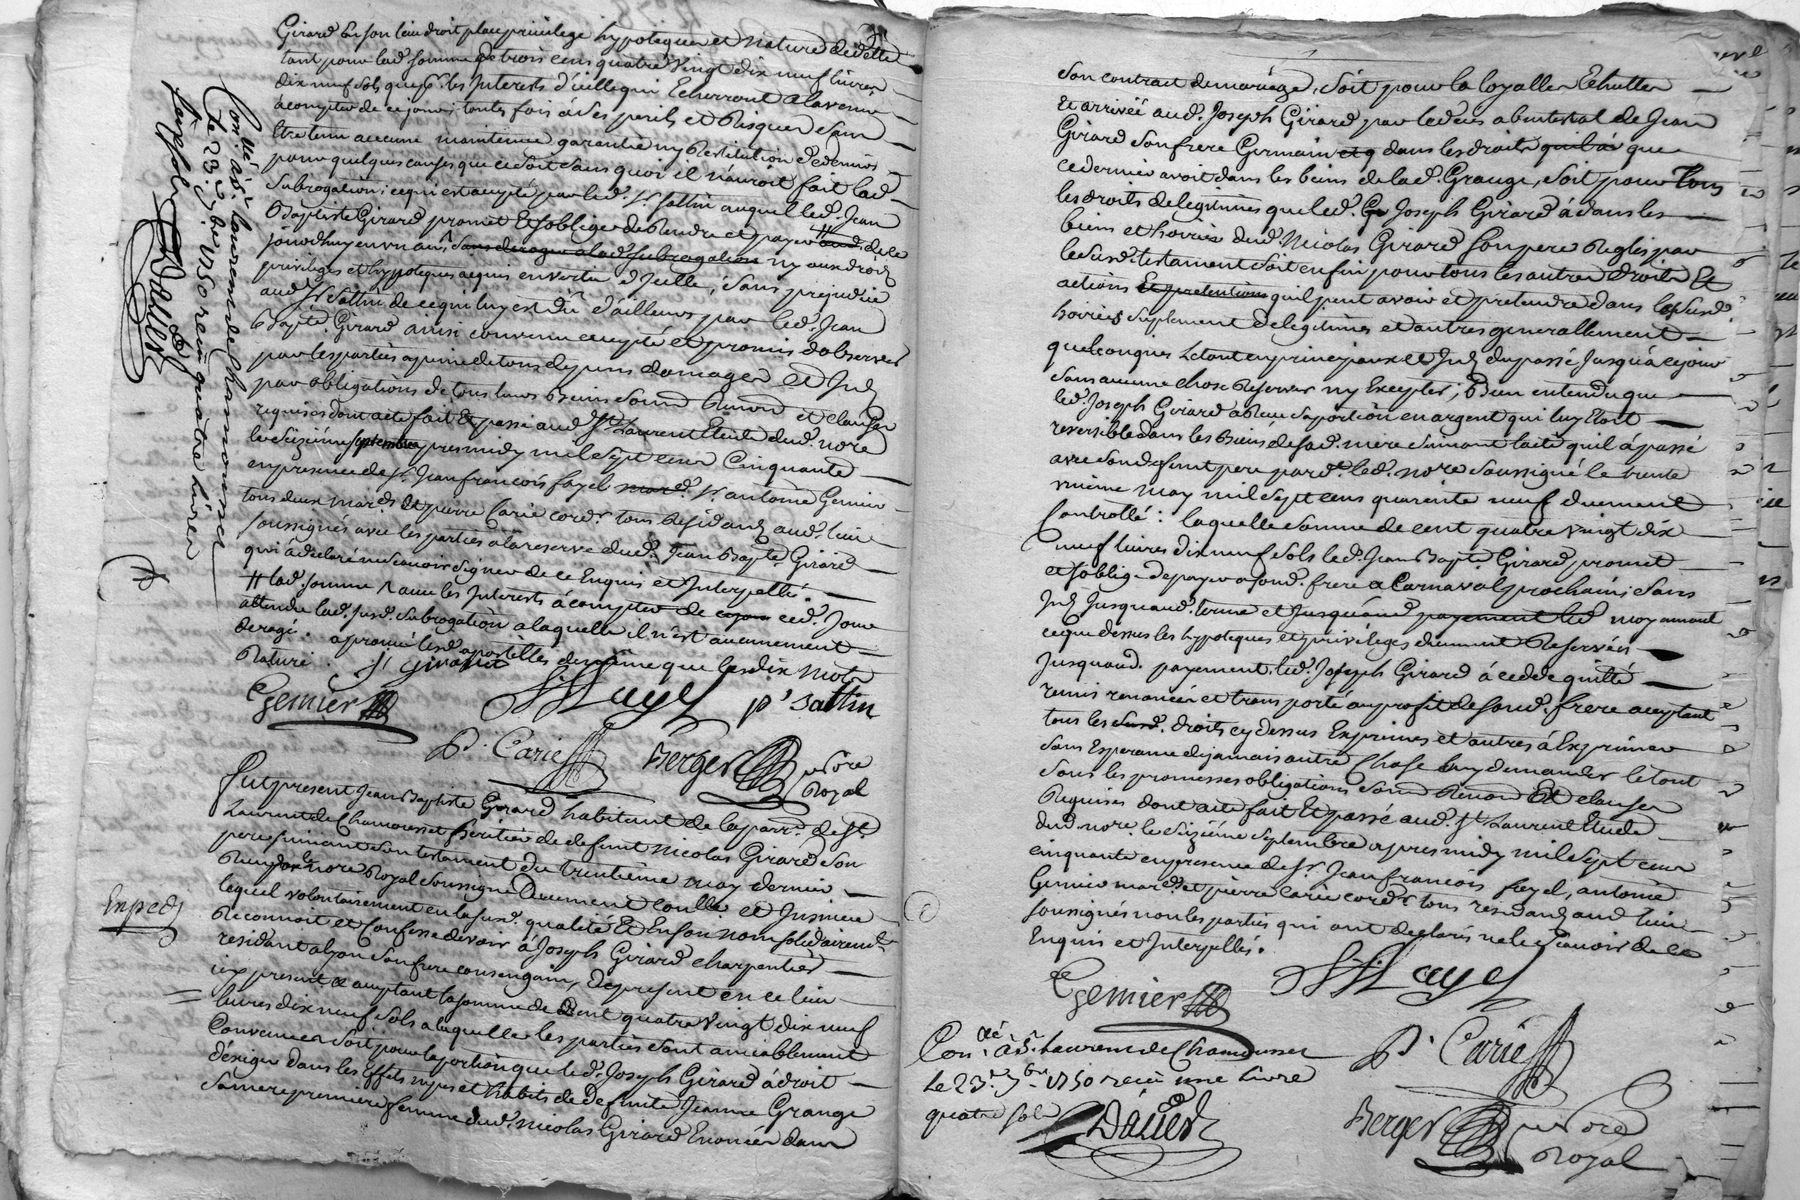 Girard en son lieu droit place privilege hypoteque et nature de dette
tant pour lad. somme de trois cens quatre vingt dix neuf livres
dix neuf sols que pr. les Interets d'icelle qui Echerront a lavenir
a compter de ce jour; toutes fois á ses perils et Risques sans
Etre tenu aucune maintenue garantie ny Restitution de deniers
pour quelques causes que ce soit sans quoi il n'auroit fait lad.
Subrogation; ce qui est accepté par led. Sr. Sattin auquel led. Jean
Baptiste Girard promet Et s'oblige de Rendre et payer d'icy
jourdhuy en un an sans deroger a lad. subrogation ny aux droits
privileges et hypoteques acquis en vertu d'Icelle, sans prejudice
aud. Sr. Sattin de ce qui luy est dû d'ailleurs par led. Jean
Bapte. Girard ainsi convenu accepté et promis d'observer
par les parties a peine de tous depens domages et Int.
par obligations de tous leurs Biens soum. Renon. et clauses
requises dont acte fait Et passé aud. St. Laurent Etude dud. nore
le seizieme septembre apres midy mil sept cens Cinquante
en presence de Sr. Jean francois fayel mard. Sr. antoine Gemier
tous deux mards. Et pierre Carie cordr. tous Residants aud. lieu
soussignés avec les parties a la reserve dud. Jean Bapte. Girard
qui á declaré ne scavoir signer de ce Enquis et Interpellé.
# lad. somme avec les Interets á compter de ce jour ced. Jour
attendu lad. susd. subrogation a laquelle il n'est aucunement
derogé. aprouvé lesd. apostilles de même que les dix mots
Raturé. J Girard
Gemier Fayel p. Sattin
P. Carie Berger Nore
Royal
Contrôlé. á St. Laurent de Chamousset
le 23e. 7bre 1750 receu quatre Livres
six sols Dalier
Exped.
Fut present Jean Baptiste Girard habitant de la parr. de St.
Laurent de Chamousset heritier de deffunt Nicolas Girard son
pere suivant son testament du trentieme may dernier
Reçu par le nore Royal soussigné Duement Conllé. et Insinué
lequel volontairement en la susd. qualité Et En son nom solidairement
Reconnoit et Confesse devoir á Joseph Girard charpentier
residant a lyon son frere consanguin, De present en ce lieu
icy present et acceptant la somme de Cent quatre vingt dix neuf
livres dix neuf sols a laquelle les parties sont amiablement
Convenues soit pour la portion que led. Joseph Girard á droit
d'exiger dans les Effets nipes et habits de deffunte Jeanne Grange
sa mere premiere femme dud. Nicolas Girard Enoncés dans
son contract de mariage, soit pour la loyalle Echutte
Et arrivée aud. Joseph Girard par le deces abintestat de Jean
Girard son frere Germain et q dans les droits quil av que
ce dernier avoit dans les biens de lad. Grange, soit pour tous
les droits de legitimes que led. G Joseph Girard á dans les
biens et hoirie dud. Nicolas Girard son pere Reglés par
le susd. testament soit enfin pour tous les autres droits Et
actions Et pretentions quil peut avoir et pretendre dans les susd.
hoiries suplement de legitimes et autres generallement
quelconques Letout en principaux et Int. du passé Jusqu'á ce jour
sans aucune chose Reserver ny Excepter; Bien entendu que
led. Joseph Girard a Reçu sa portion en argent qui luy Etoit
reversible dans les Biens de sad. mere suivant l'acte quil á passé
avec son deffunt pere pardt. led. nore Soussigné le trente
unieme may mil sept cens quarante neuf duement
Controllé: laquelle somme de cent quatre vingt dix
neuf livres dix neuf sols led. Jean Bapte. Girard promet
et s'oblige de payer a sond. frere a Carnaval prochain; sans
Int. Jusquaud. terme et Jusquaud payement led moyenant
ce que dessus les hypoteques et privileges duement Reservés
Jusquaud. payement. led. Joseph Girard á cedde quitté
remis renoncé et transporté au profit de sond. frere acceptant
tous les susd. droits cy dessus Exprimes et autres á Exprimer
sans Esperance de jamais autre Chose luy demander le tout
sous les promesses obligations soum. Renon. Et clauses
Requises dont acte fait Et passé aud. St. Laurent Etude
dud. nore. le seizième septembre apres midy mil sept cens
cinquante en presence de Sr. Jean francois fayel, antoine
Gemier mard. et pierre Carie cordr. tous residants aud. lieu
soussignés non les parties qui ont declarés ne le scavoir de ce
Enquis et Interpellés.
Gemier Fayel
P. Carie
Contrôlé. á St. Laurent de Chamousset
le 23e. 7bre. 1750 receu une Livre
quatre sols
Dalier
Berger Nore
Royal